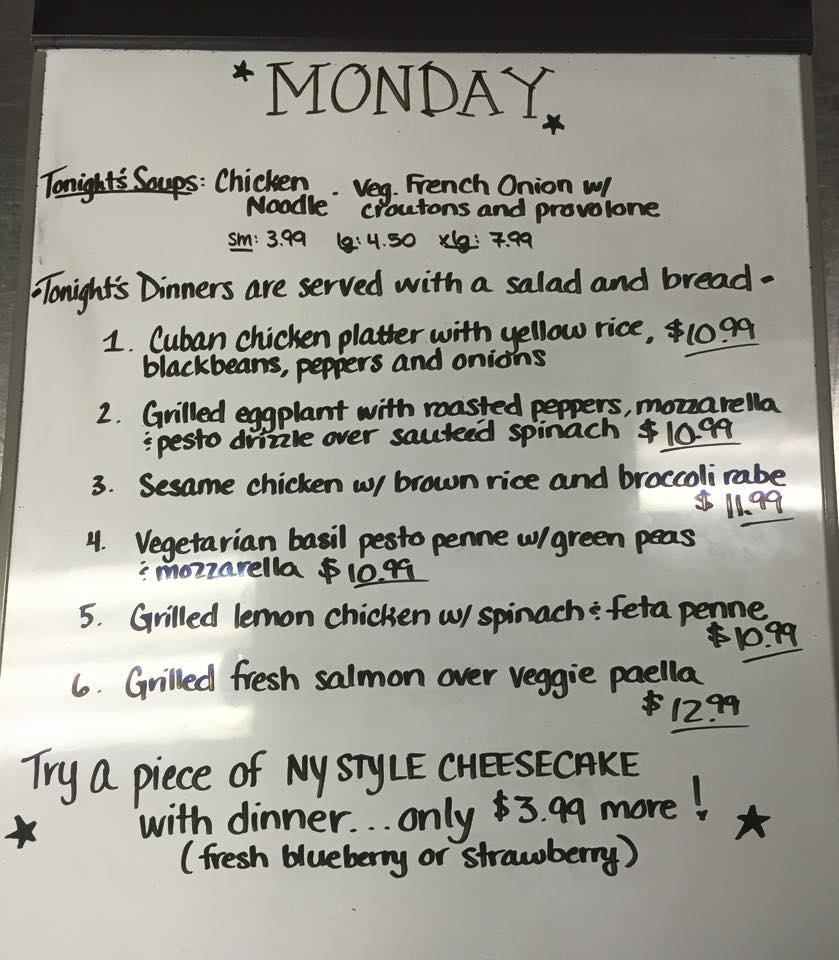 MONDAY
Tonight's Soups: Chicken Noodle . Veg. French Onion w/ croutons and provolone
sm: 3.99 lg: 4.50 xlg: 7.99
•Tonight's Dinners are served with a salad and bread•
1. Cuban chicken platter with yellow rice, $10.99
blackbeans, peppers and onions
2. Grilled eggplant with roasted peppers, mozzarella
& pesto drizzle over sauteed spinach $10.99
3. Sesame chicken w/ brown rice and broccoli rabe
$11.99
4. Vegetarian basil pesto penne w/green peas
& mozzarella $10.99
5. Grilled lemon chicken w/ spinach & feta penne
$10.99
6. Grilled fresh salmon over veggie paella
$12.99
Try a piece of NY STYLE CHEESECAKE
with dinner...only $3.99 more!
(fresh blueberry or strawberry)